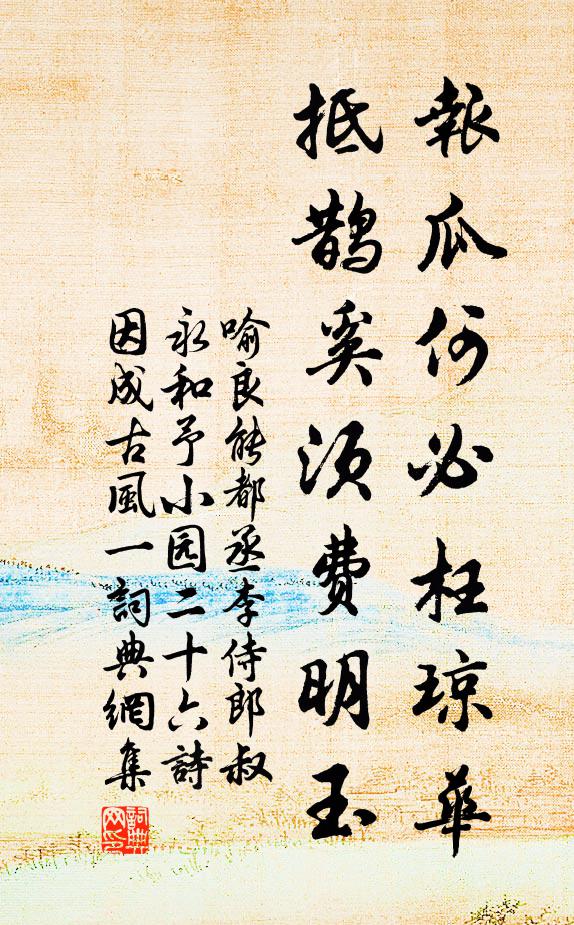 報瓜何必枉琼華
抵鹊奚须费明玉
喻良能都丞李侍郎叔
永和予小园二十六詩
因成古風一詞典網集
詞典網印